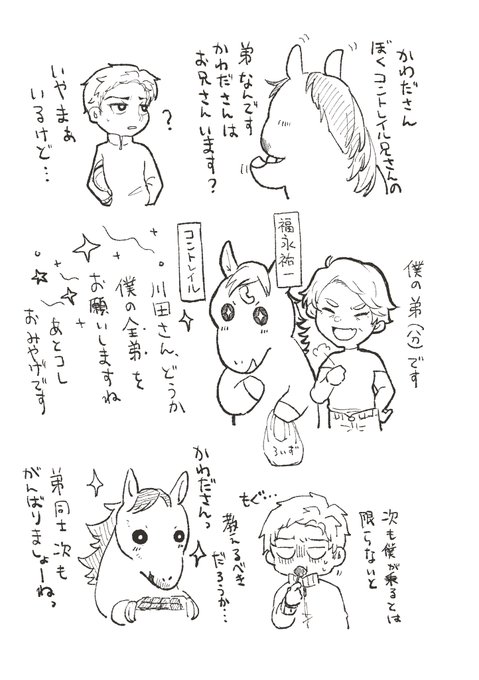 かわださん
ぼくコントレイル兄さんの
弟なんです
かわださんは
お兄さんいます?
?
いやまぁ
いるけど…
僕の弟(分)です
福永祐一
コントレイル
川田さん、どうか
僕の全弟を
お願いしますね
あとコレ
おみやげです
ろいず
次も僕が乗るとは
限らないと
もぐ…
教えるべき
だろうか…
かわださんっ
弟同士次も
がんばりましょーねっ